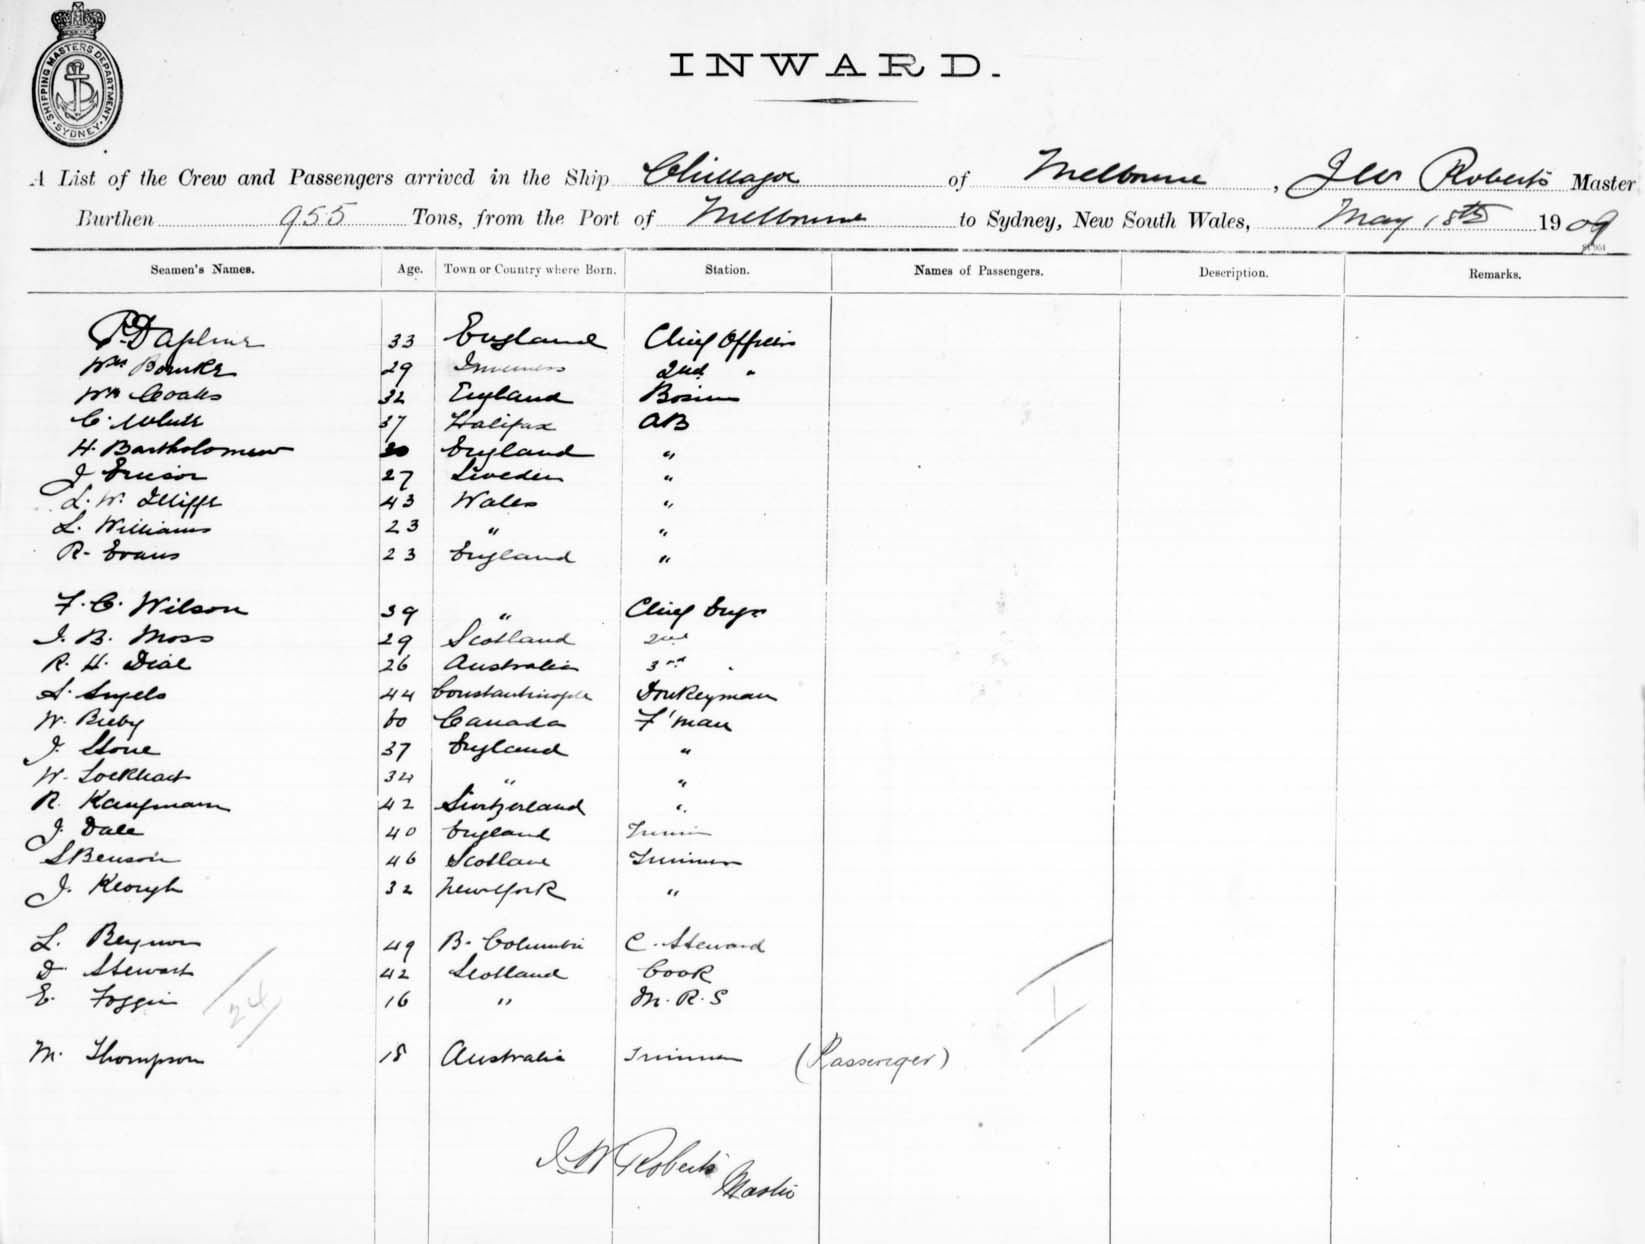 SHIPPING MASTERS DEPARTMENT · SYDNEY ·
INWARD.
A List of the Crew and Passengers arrived in the Ship Chillagoe of Melbourne, J W Roberts Master
Burthen 955 Tons, from the Port of Melbourne to Sydney, New South Wales, May 18th 1909
Seamen's Names. Age. Town or Country where Born. Station. Names of Passengers. Description. Remarks.
33 England Chief Officer
Wm Bourke 29 Inverness 2nd "
Wm Coales 32 England Bosun
C. White 37 Halifax AB
H. Bartholomew England "
J Ericson 27 Sweden "
L. W. Illiffe 43 Wales "
L. Williams 23 " "
R. Evans 23 England "
F. C. Wilson 39 " Chief Engr
J. B. Moss 29 Scotland 2nd
R. H. Dial 26 Australia 3rd "
S. Angelo 44 Constantinople Donkeyman
W. Bieby 60 Canada F'man
J. Stone 37 England "
W. Lockhart 34 " "
R. Kaufmann 42 Switzerland "
J. Dale 40 England
S Benson 46 Scotland Trimmer
J. Keough 32 New York "
L. Beynon 49 B. Columbia C. Steward
D. Stewart 42 Scotland Cook
E. Foggin 16 " M. R. S
24 1
M. Thompson 18 Australia Trimmer (Passenger)
J. W Roberts
Master